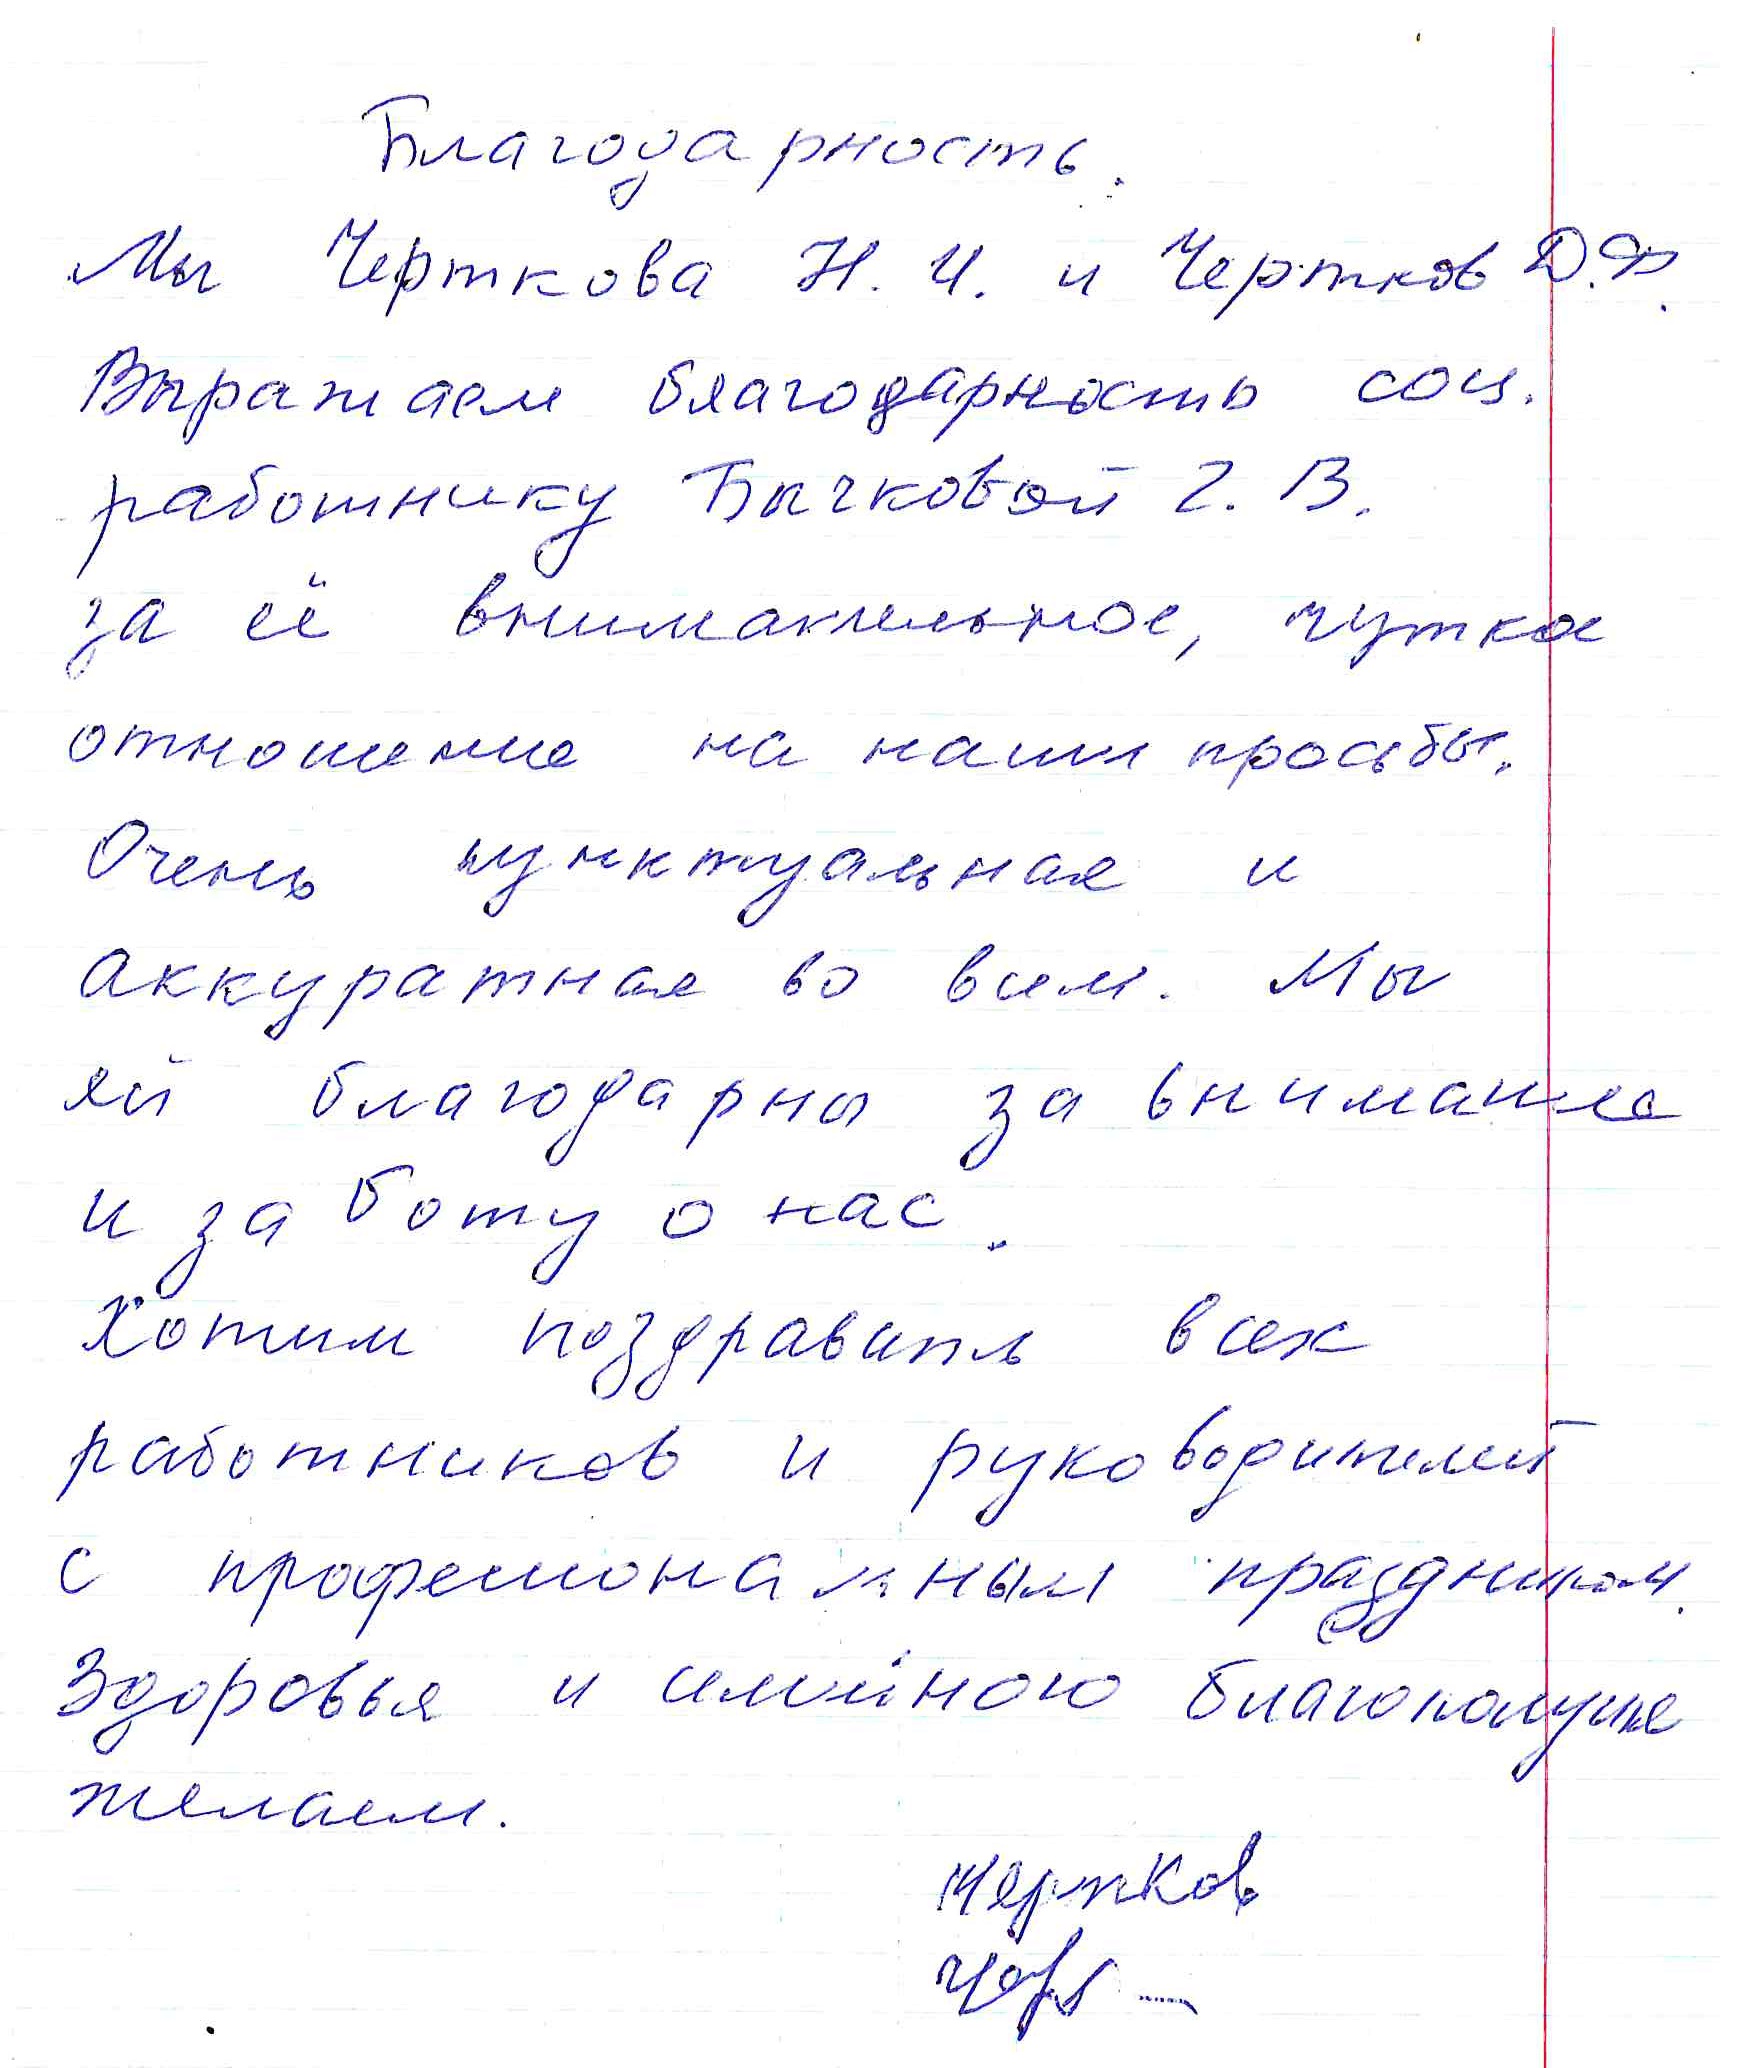 Благодарность.
Мы Черткова Н. И. и Чертков Д.Ф.
Выражаем благодарность соц.
работнику Бычковой Г. В.
за её внимательное, чуткое
отношение на наши просьбы.
Очень пунктуальная и
аккуратная во всем. Мы
ей благодарны за внимание
и заботу о нас.
Хотим поздравить всех
работников и руководителей
с професиональным праздником.
Здоровья и семейного благополучие
желаем.
Чертков